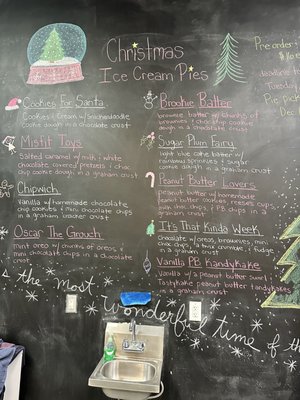 Christmas
Ice Cream Pies
Cookies For Santa
Cookies & Cream w/ Snickerdoodle
cookie dough in a chocolate crust
Misfit Toys
Salted caramel w/ milk & white
chocolate covered pretzels & choc
chip cookie dough in a graham crust
Chipwich
Vanilla w/ homemade chocolate
chip cookies & mini chocolate chips
in a graham cracker crust
Oscar The Grouch
mint oreo w/ chunks of oreos &
mini chocolate chips in a
chocolate crust
Brookie Batter
brownie batter w/ chunks of
brownies & chocolate chip cookie
dough in a chocolate crust
Sugar Plum Fairy
light blue cake batter w/
rainbow sprinkles & sugar
cookie dough in a graham crust
Peanut Butter Lovers
peanut butter w/ homemade
peanut butter cookies, reeses cups,
choc chips & PB chips in a
graham crust
It's That Kinda Week
Chocolate w/ oreos, brownies, mini
choc chips, & fudge
in a chocolate crust
Vanilla PB Kandykake
Vanilla w/ a peanut butter swirl &
Tastykake peanut butter kandykakes
in a graham crust
Pre order
deadline
Pre pick
Dec
the most wonderful time of the